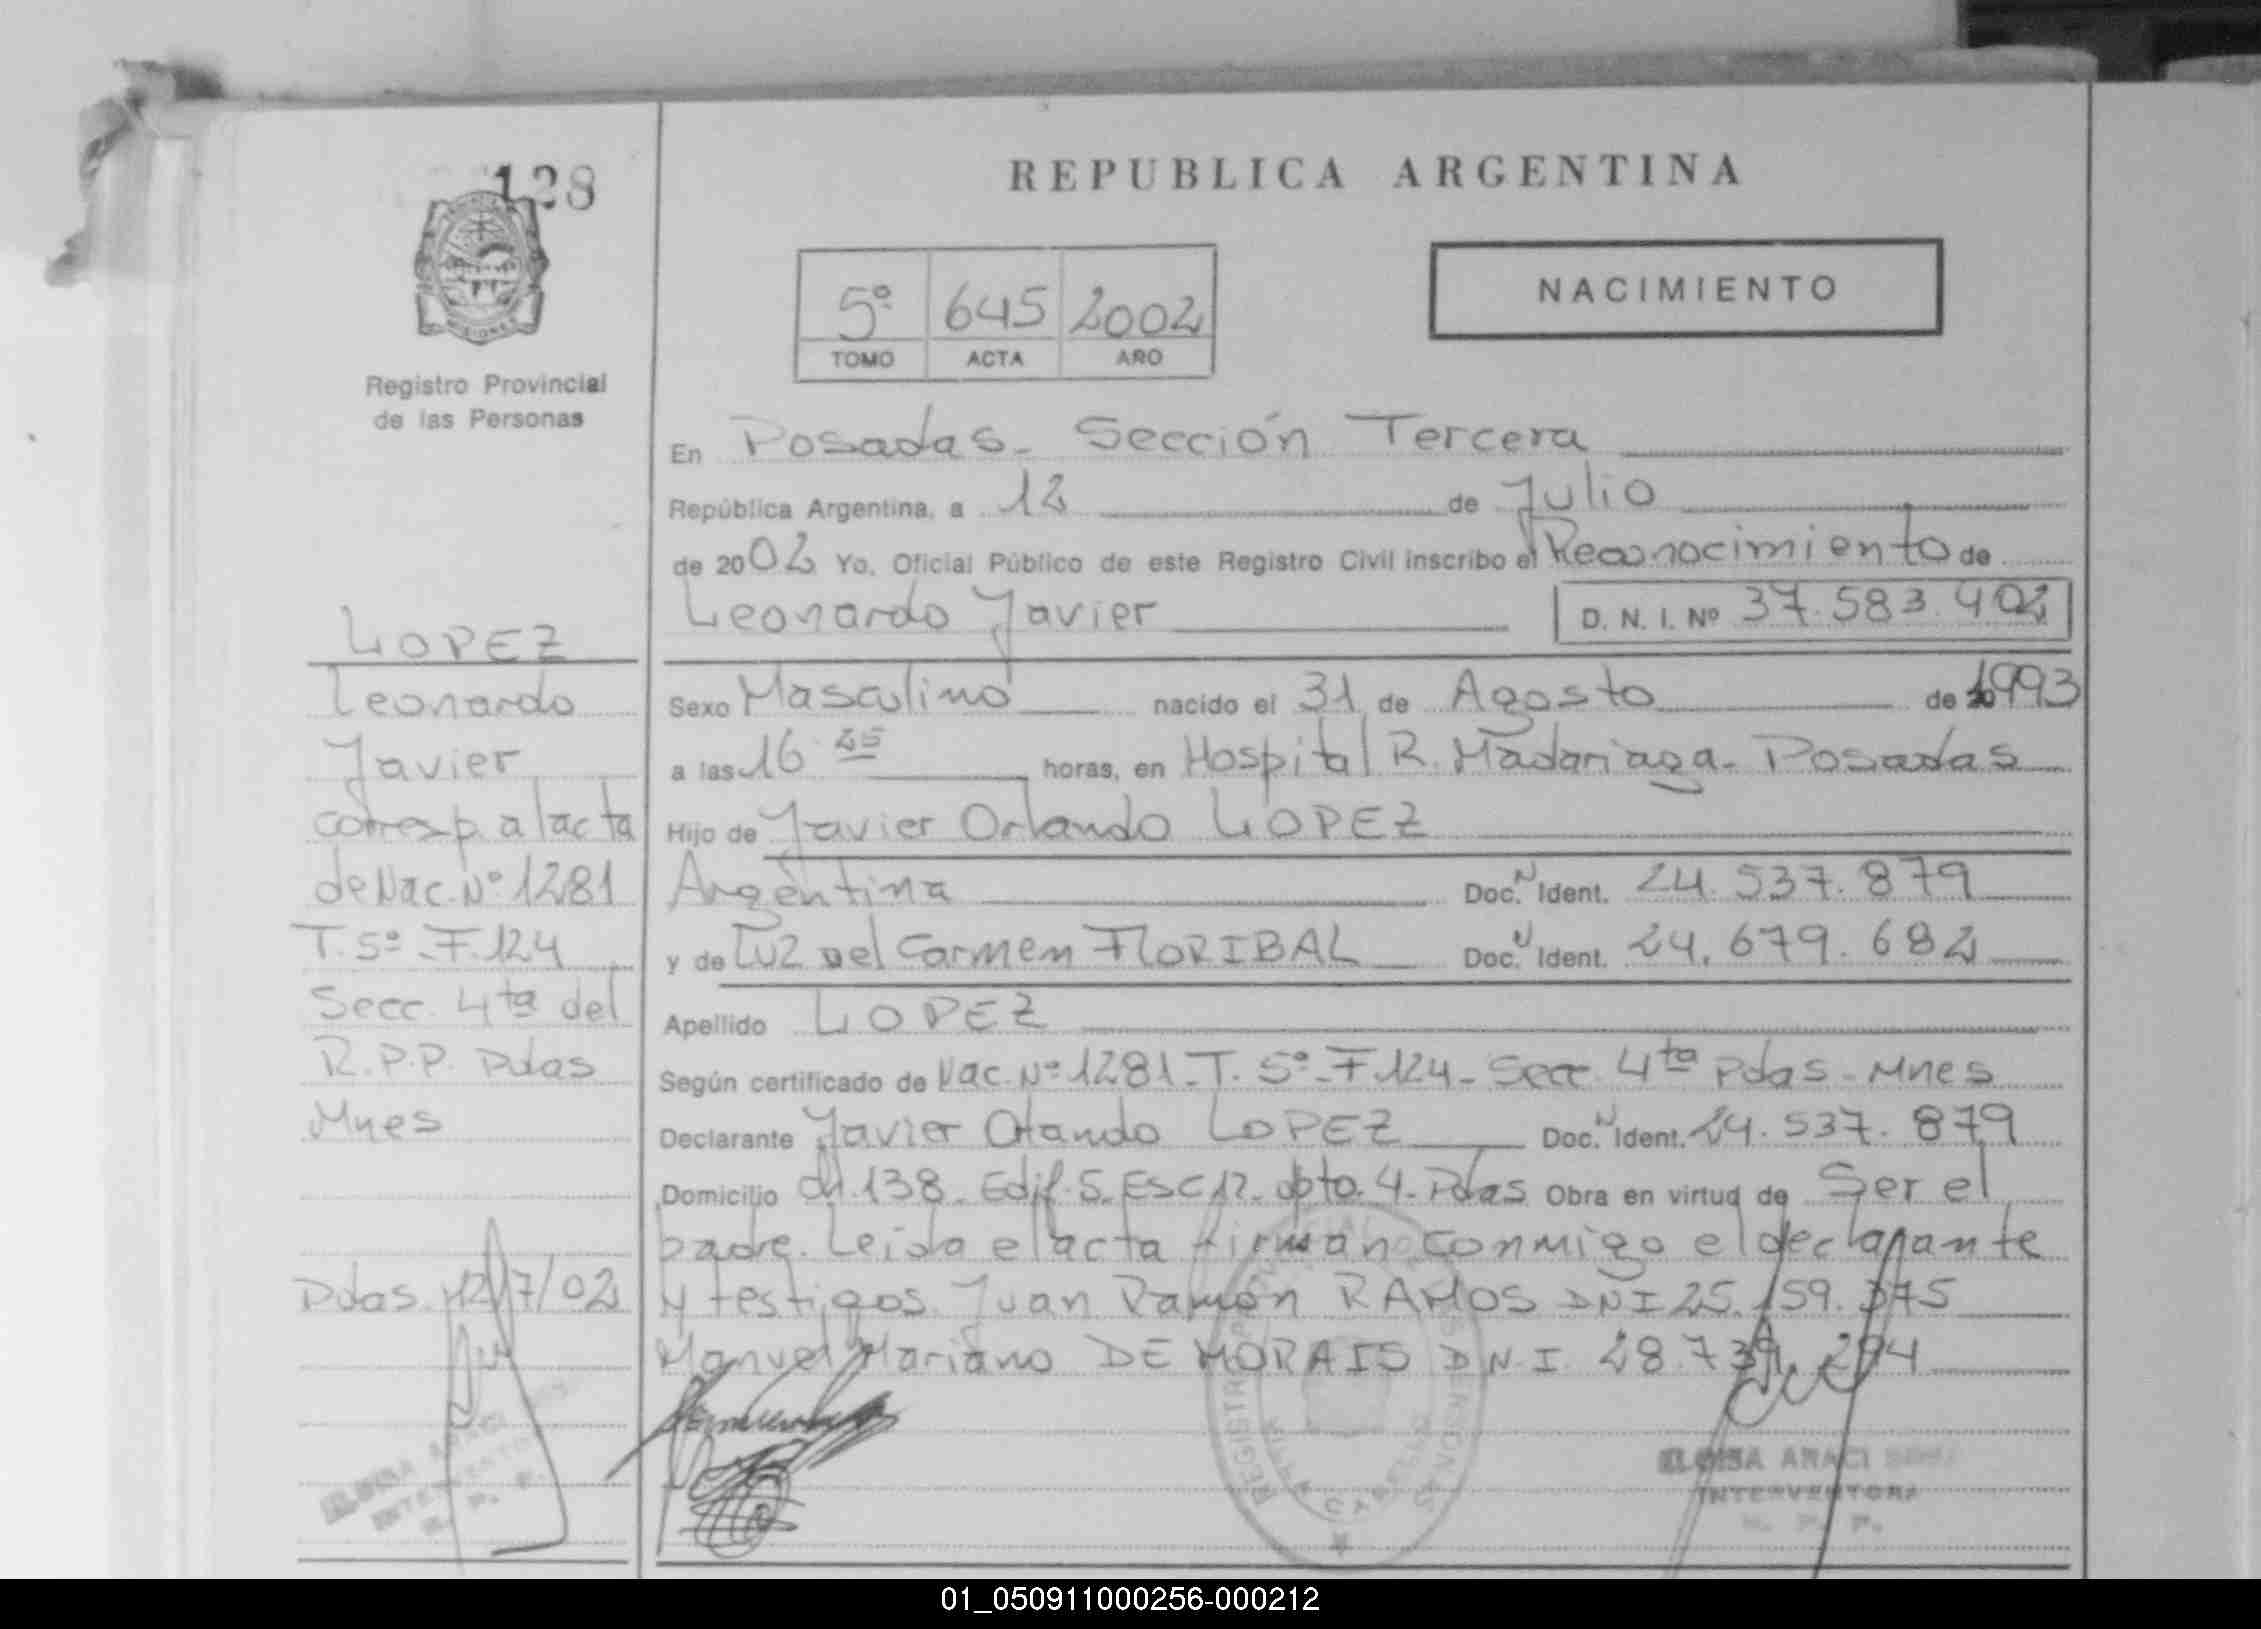 128
Registro Provincial
de las Personas
LOPEZ
Leonardo
Javier
corresp. a l acta
de Nac. Nº 1281
T. 5º - F. 124
Secc. 4ta del
R.P.P. Pdas
Mnes
Pdas. 12/7/02
REPUBLICA ARGENTINA
5º 645 2002
TOMO ACTA AÑO
NACIMIENTO
En Posadas - Sección Tercera
República Argentina, a 12 de Julio
de 2002 Yo, Oficial Público de este Registro Civil inscribo el Reconocimiento de
Leonardo Javier D. N. I. Nº 37.583.402
Sexo Masculino nacido el 31 de Agosto de 1993
a las 16 horas, en Hospital R. Madariaga - Posadas
Hijo de Javier Orlando LOPEZ
Argentina Doc. N Ident. 24.537.879
y de Luz del Carmen FLORIBAL Doc. N Ident. 24.679.682
Apellido LOPEZ
Según certificado de Nac. Nº 1281 - T. 5º - F. 124 - Secc. 4ta Pdas - Mnes
Declarante Javier Orlando LOPEZ Doc. N Ident. 24.537.879
Domicilio ch. 138 - Edif. 5 - Esc 12 - dpto. 4 - Pdas Obra en virtud de Ser el
padre. Leida el acta firman conmigo el declarante
y testigos. Juan Ramón RAMOS DNI 25.159.375
Manuel Mariano DE MORAIS D.N.I. 28.739.294
ELOISA ARACI
INTERVENTORA
R. P. P.
01_050911000256-000212